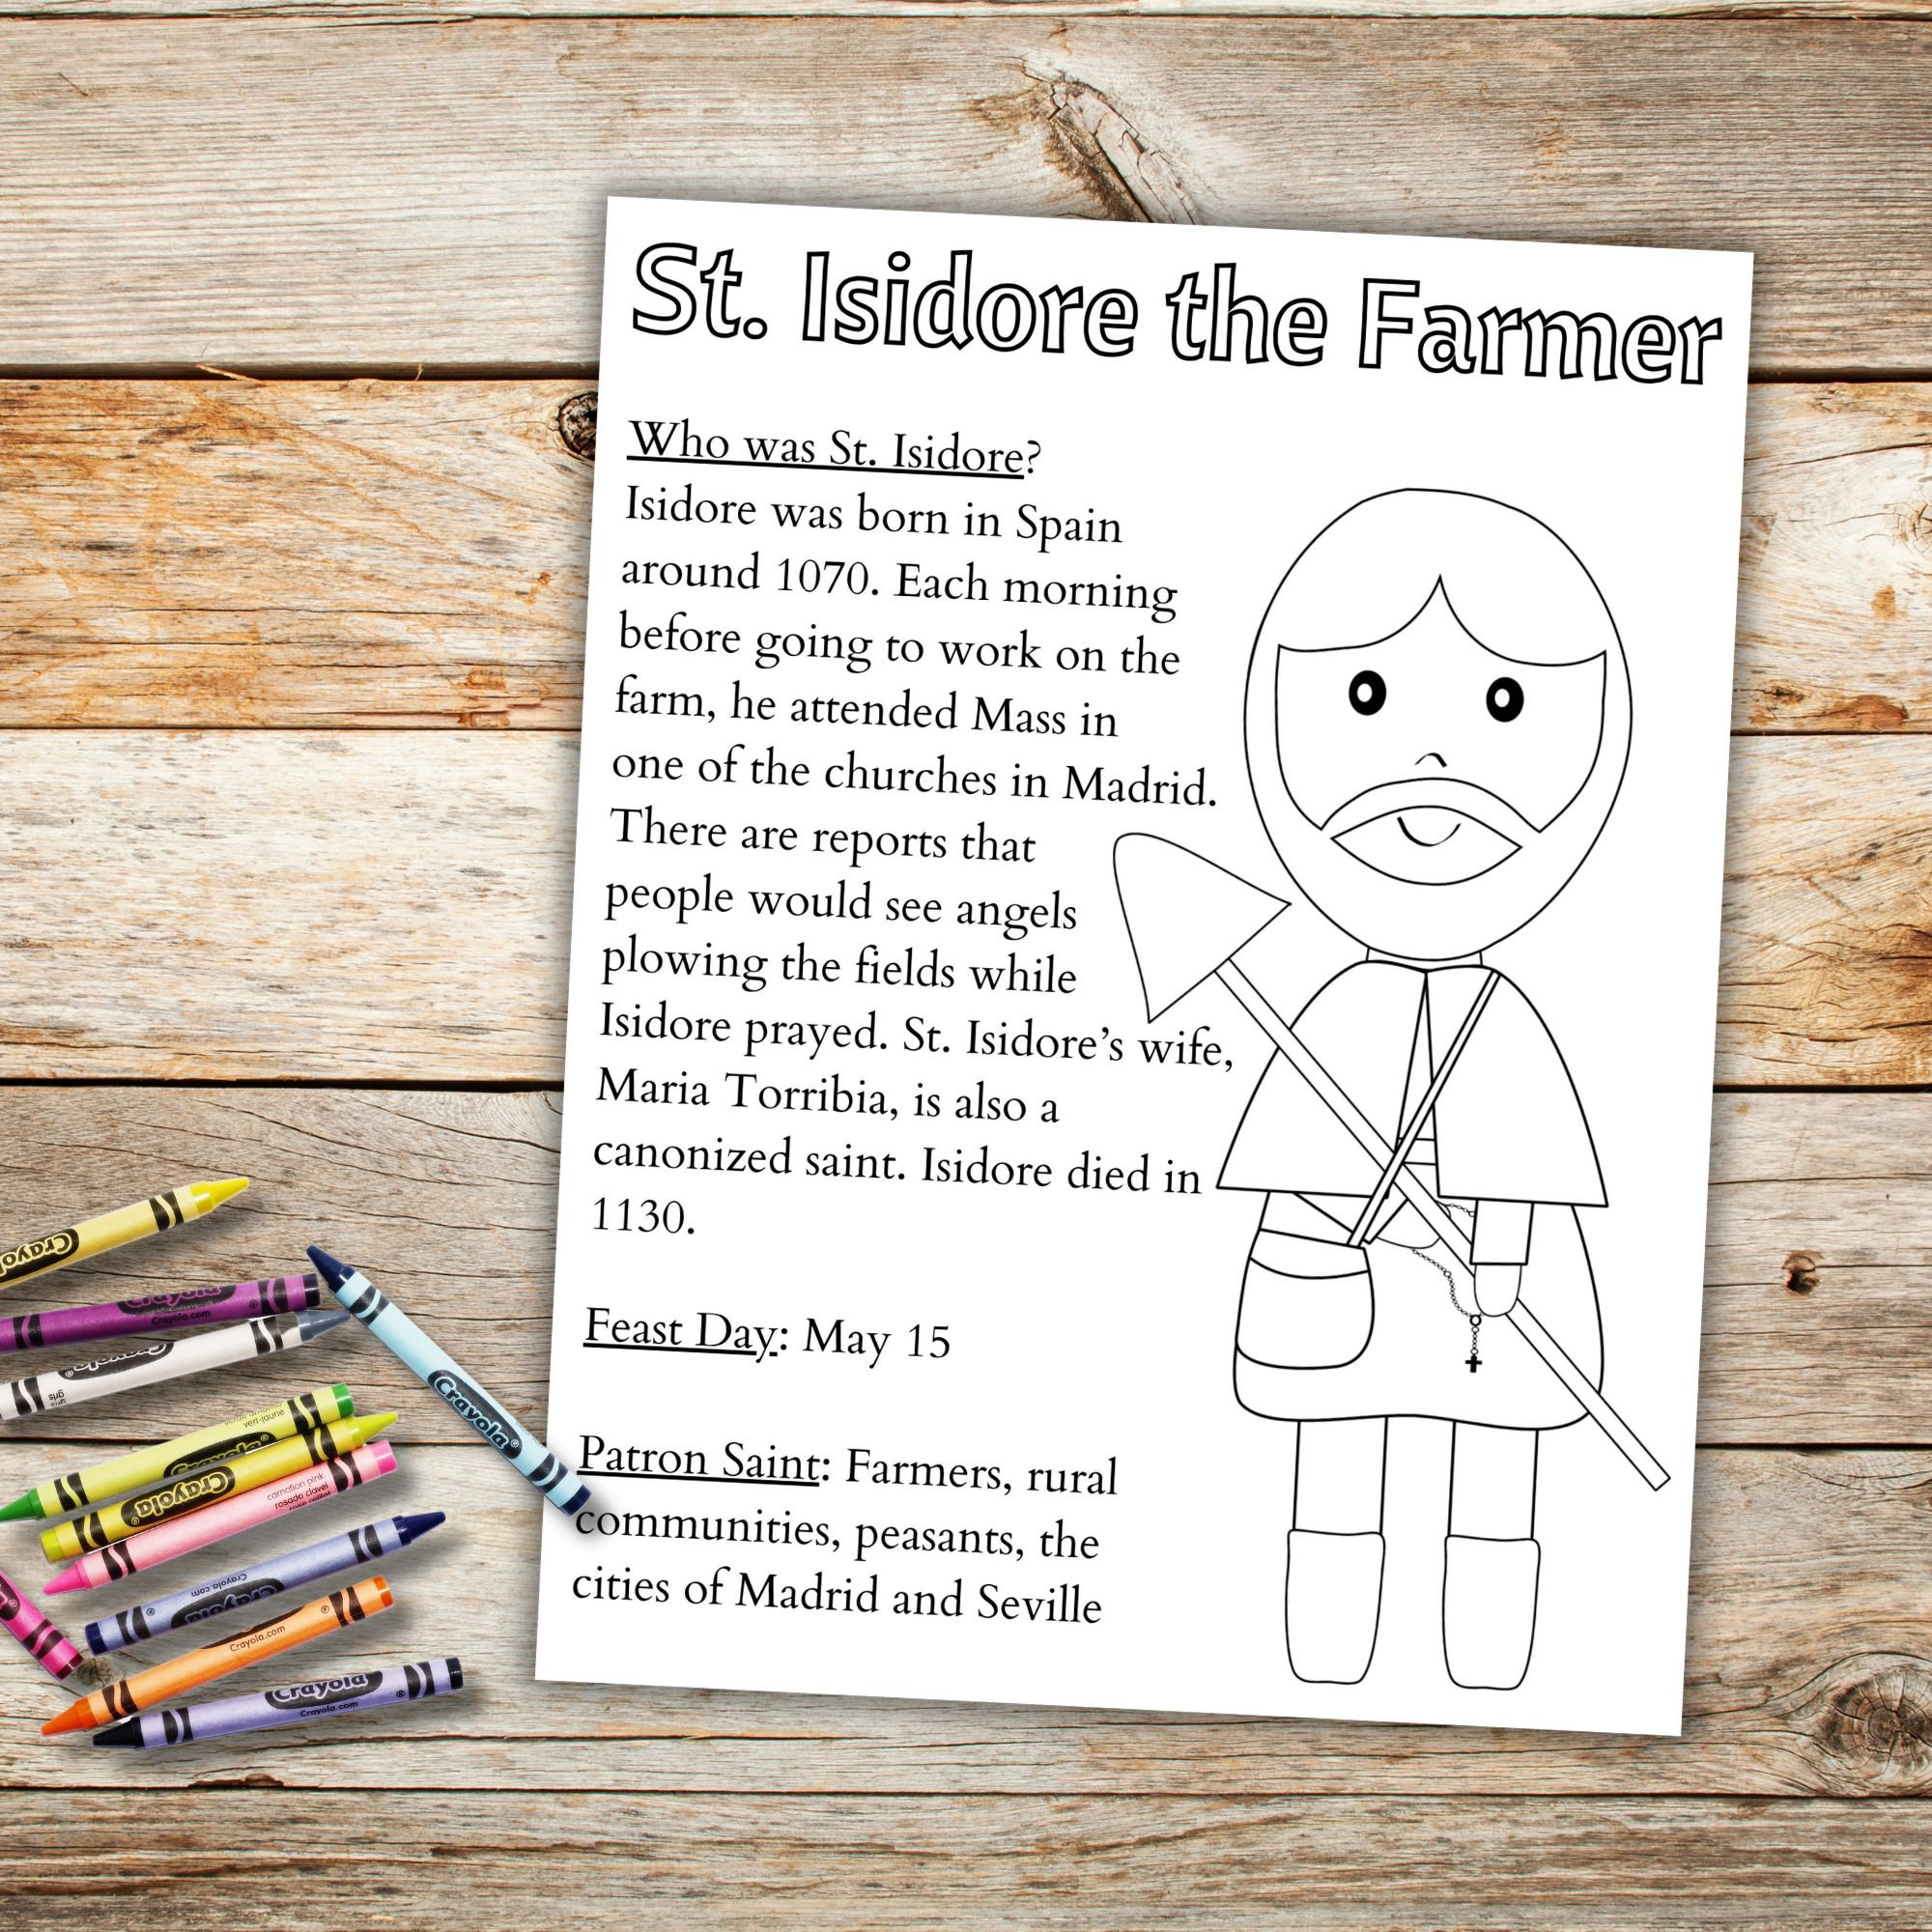 St. Isidore the Farmer
Who was St. Isidore?
Isidore was born in Spain
around 1070. Each morning
before going to work on the
farm, he attended Mass in
one of the churches in Madrid.
There are reports that
people would see angels
plowing the fields while
Isidore prayed. St. Isidore's wife,
Maria Torribia, is also a
canonized saint. Isidore died in
1130.
Feast Day: May 15
Patron Saint: Farmers, rural
communities, peasants, the
cities of Madrid and Seville
Crayola
Crayola.com
Crayola
gris
Crayola®
vert-jaune
Crayola
Crayola®
carnation pink
rosado clavel
Crayola.com
Crayola.com
Crayola®
Crayola.com